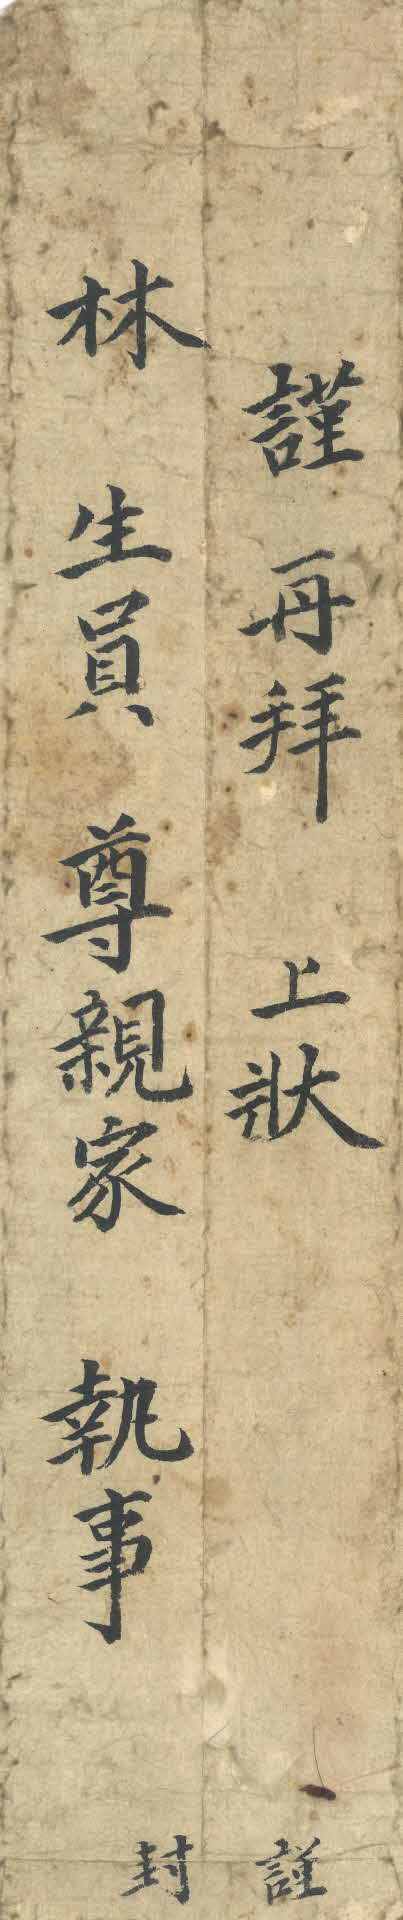 謹再拜 上狀
林 生員 尊親家 執事
謹封